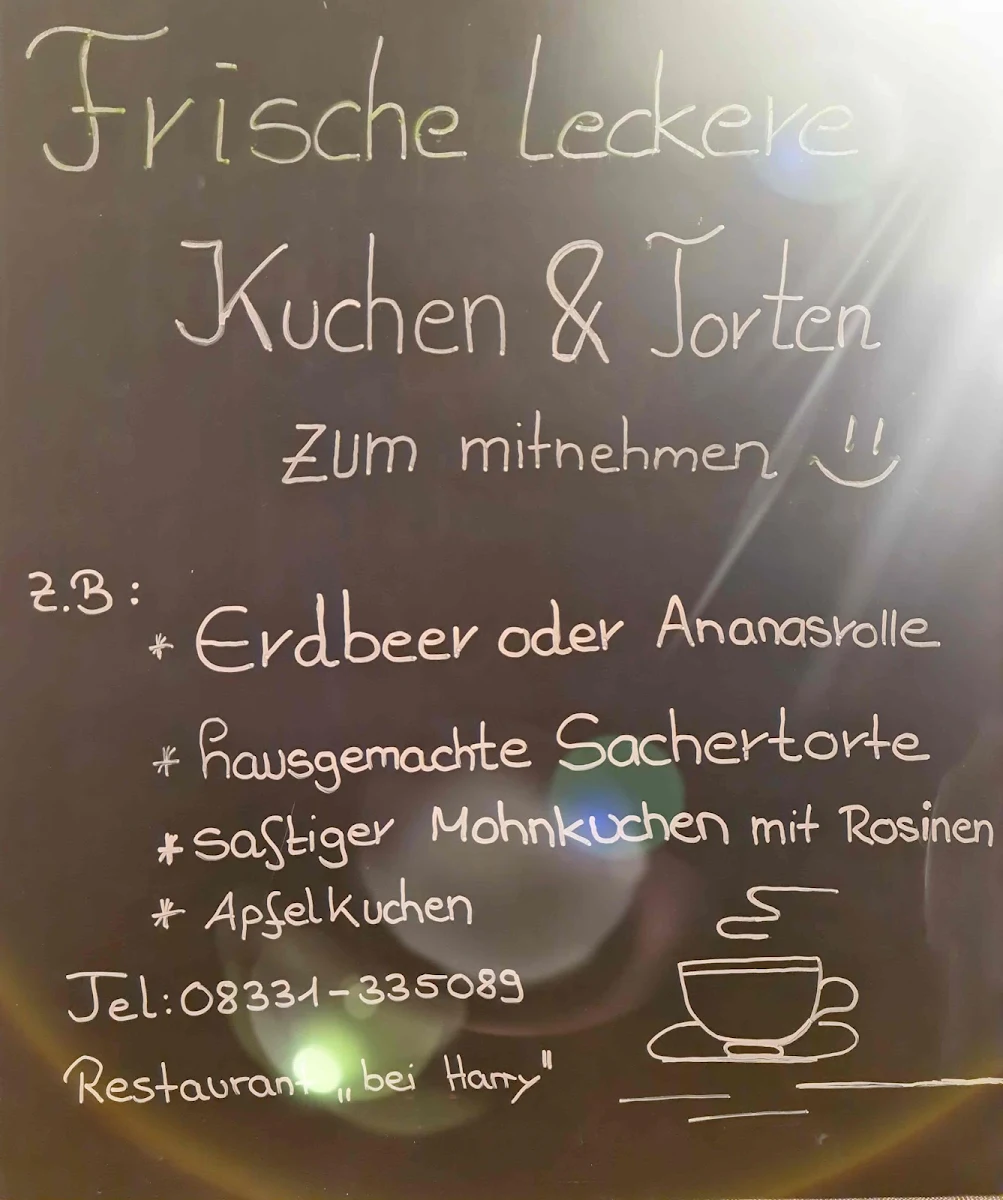 Frische leckere
Kuchen & Torten
zum mitnehmen
z.B:
* Erdbeer oder Ananasrolle
* hausgemachte Sachertorte
* saftiger Mohnkuchen mit Rosinen
* Apfelkuchen
Tel:08331-335089
Restaurant „bei Harry"